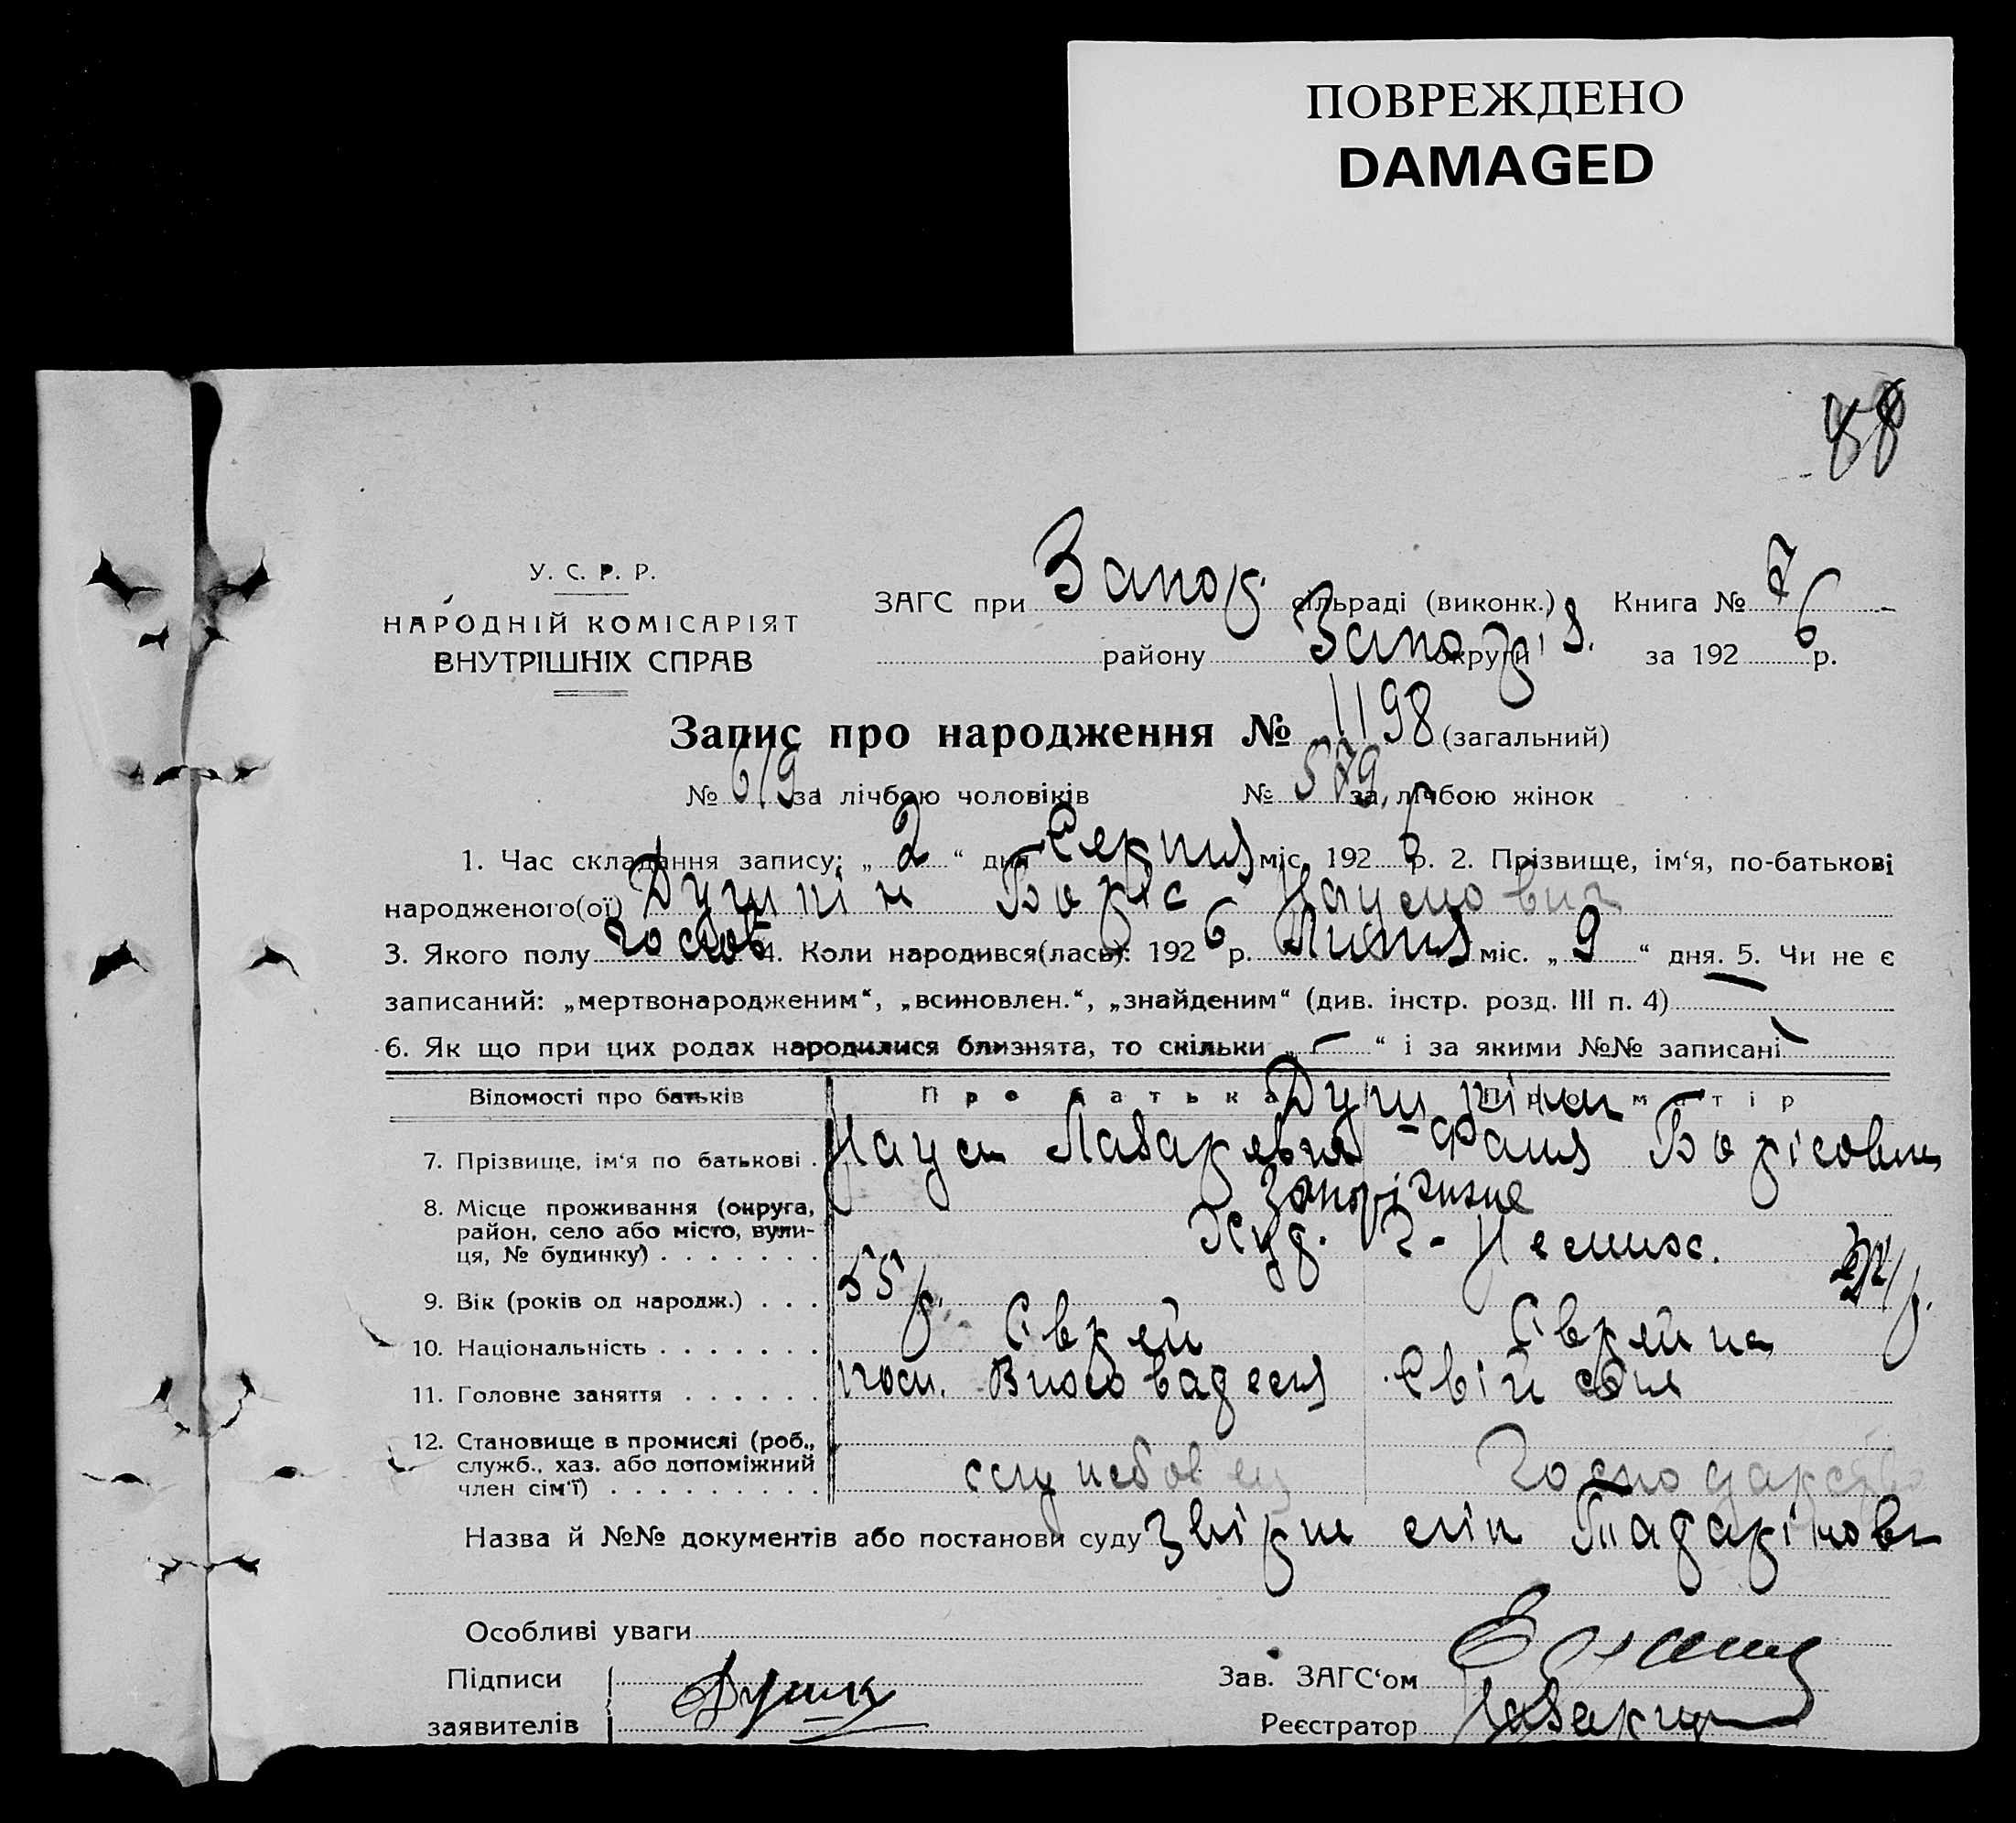 ПОВРЕЖДЕНО
DAMAGED
88
У. С. Р. Р.
НАРОДНІЙ КОМІСАРІЯТ
ВНУТРІШНІХ СПРАВ
ЗАГС при Запор. сільраді (виконк.) Книга № 7
району Запоріз. округи за 1926 р.
Запис про народження № 1198 (загальний)
№ 619 за лічбою чоловіків № 579 за лічбою жінок
1. Час складання запису: „ 2 “ дня Серпня міс. 1926 р. 2. Прізвище, ім‘я, по-батькові
народженого(ої) Душкін Боріс Наумович
3. Якого полу 4. Коли народився(лась): 1926 р. Липня міс. „ 9 “ дня. 5. Чи не є
записаний: „мертвонародженим“, „всиновлен.“, „знайденим“ (див. інстр. розд. III п. 4)
6. Як що при цих родах народилися близнята, то скільки „ — “ і за якими №№ записані —
Відомості про батьків Про батька Про матір
Душкіни
7. Прізвище, ім‘я по батькові . Наум Лазаревич Фаня Борісовна
8. Місце проживання (округа, Запоріжжє
район, село або місто, вули-
ця, № будинку) . . . . . . .
9. Вік (років од народж.) . . . 55 р.
10. Національність . . . . . . . Єврей Єврейка
11. Головне заняття . . . . . .
12. Становище в промислі (роб.,
служб., хаз. або допоміжний службовець Господарство
член сім‘ї) . . . . . . . . .
Назва й №№ документів або постанови суду
Особливі уваги
Підписи Зав. ЗАГС‘ом
заявителів Реєстратор